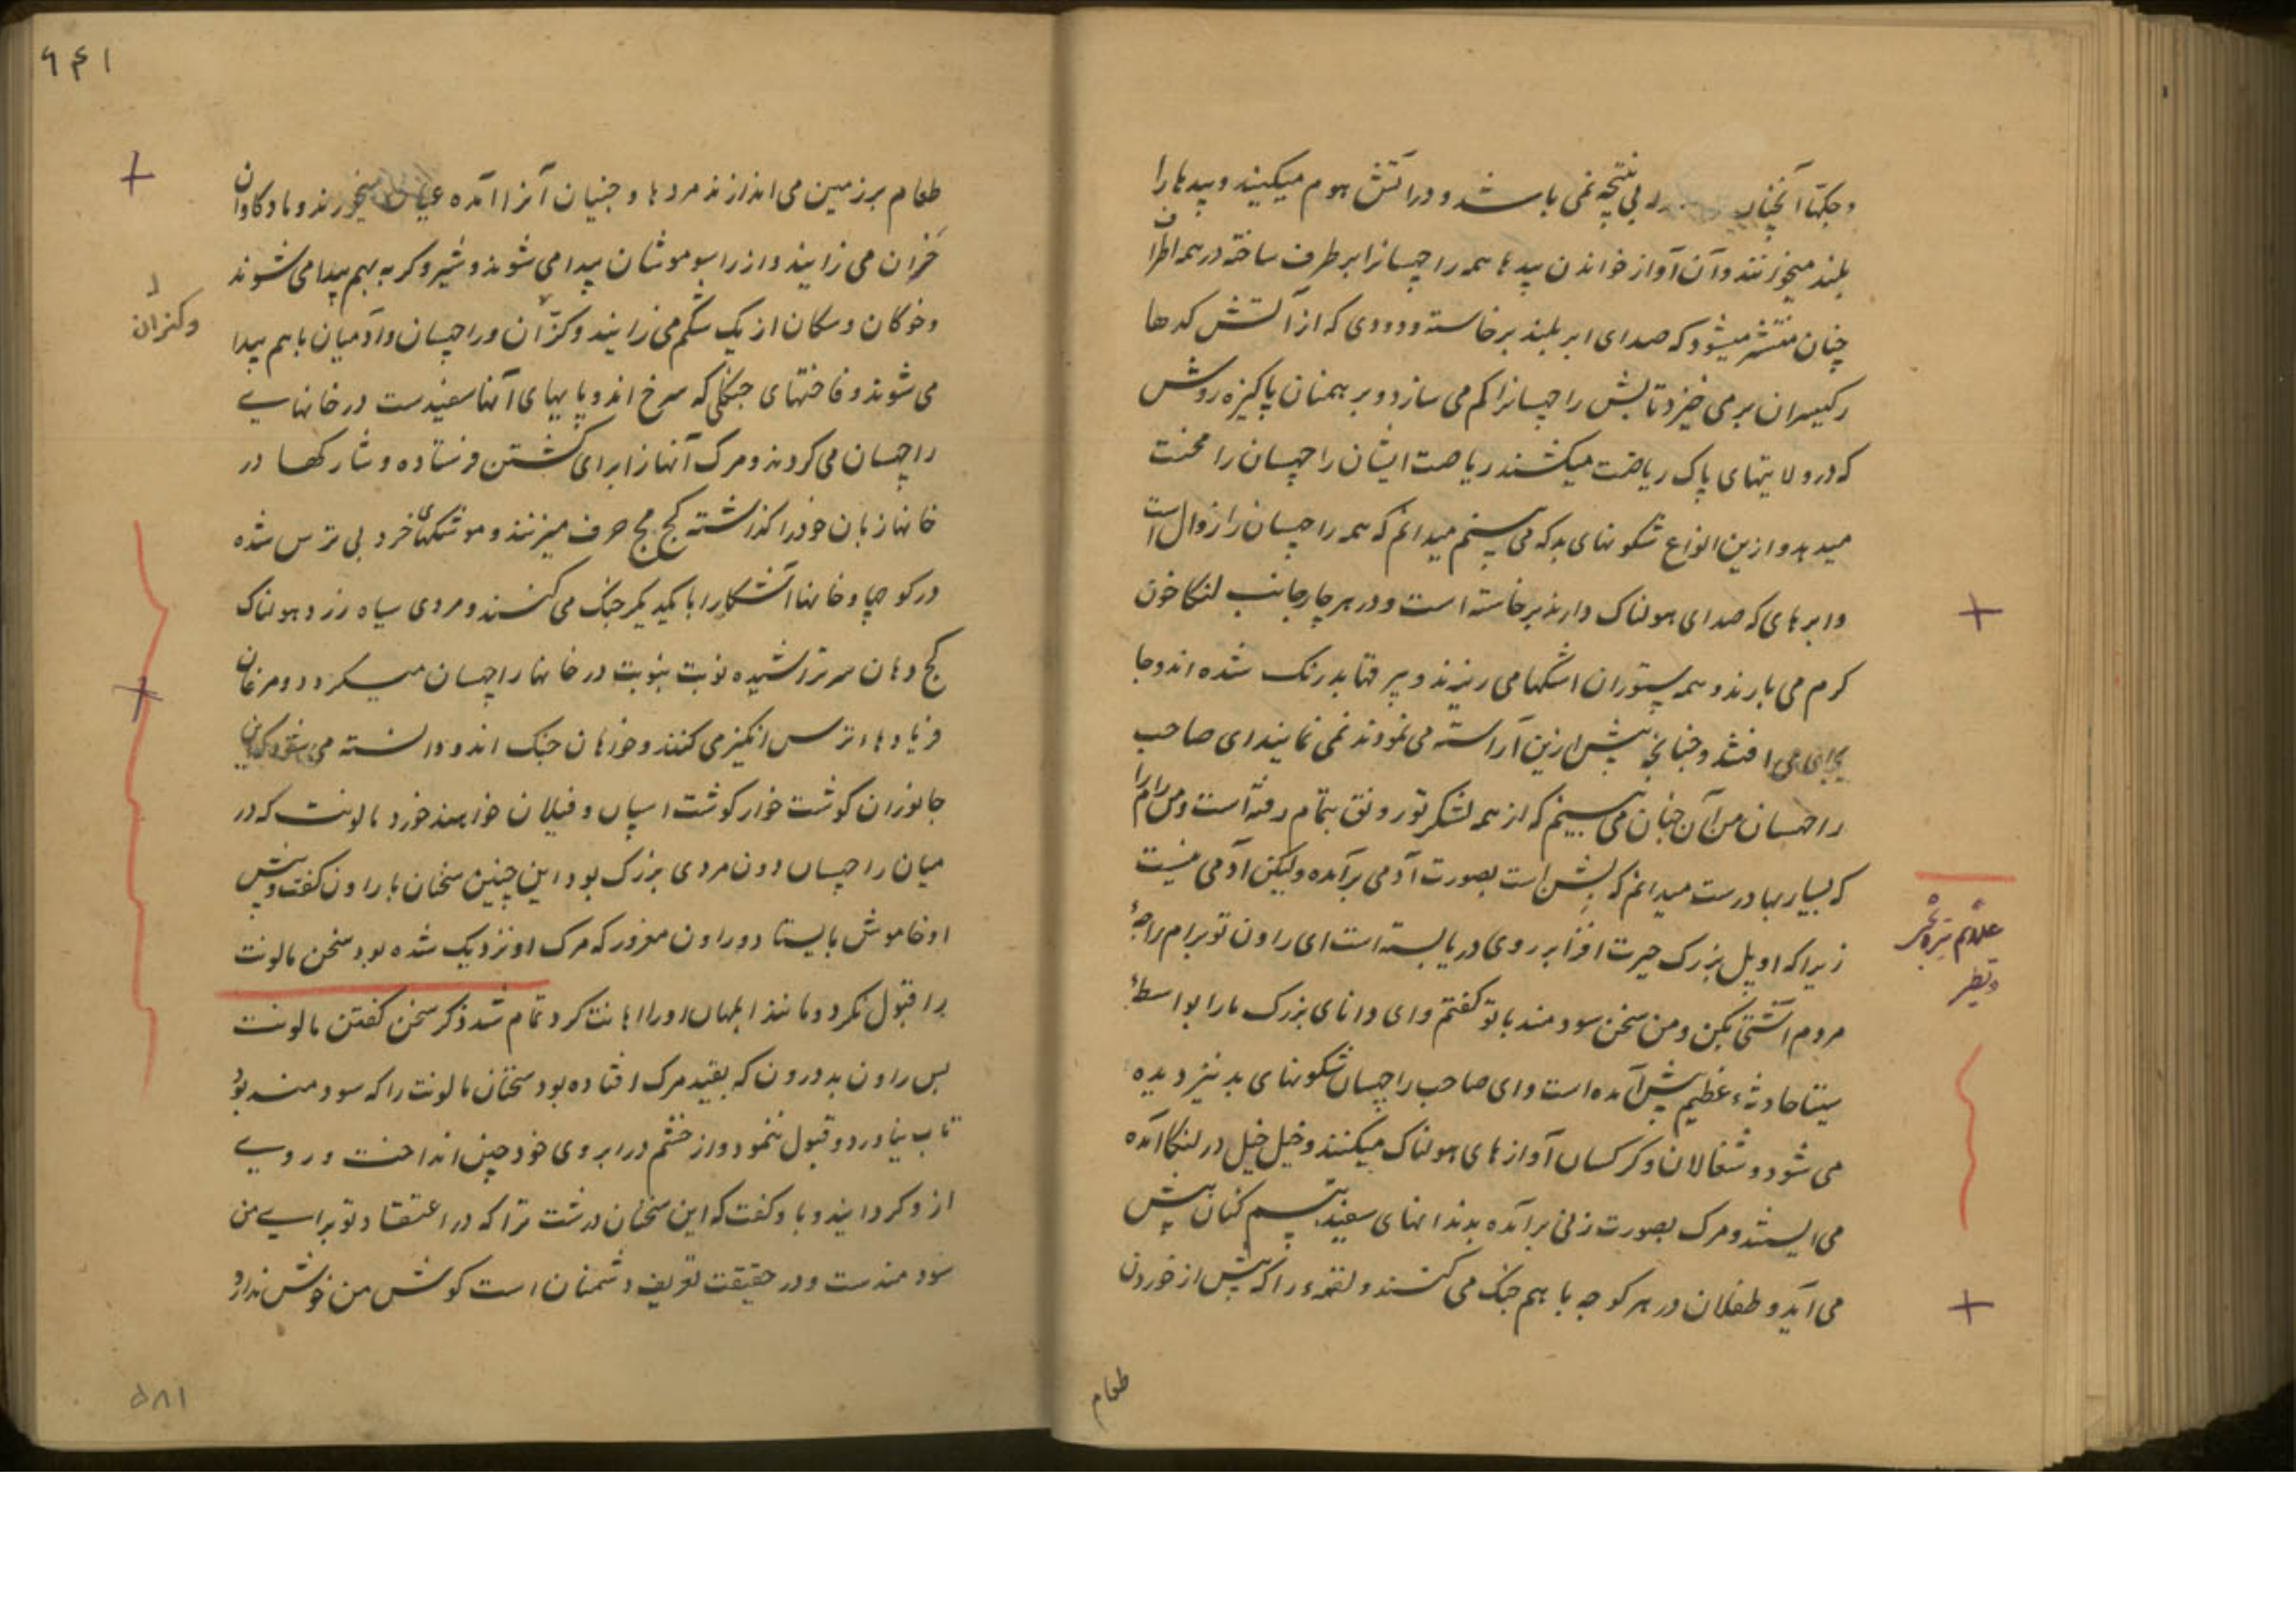 و جکهّا آنچنان بی نتیجه نمی باشد و در آتش هوم میکنند و بیدها را
بلند میخوانند و آن آواز خواندن بیدها همه راچهسانرا بر طرف ساخته در همه اطراف
چنان منتشر میشود که صدای ابر بلند برخاسته و دودی که از آتش کدها
رکیسران بر می خیزد تابش راچهسانرا کم می سازد و برهمنان پاکیزه روش
که در ولایتهای پاک ریاضت میکشند ریاضت ایشان راچهسان را محنت
میدهد و ازین انواع شکونهای بد که می بینم میدانم که همه راچهسان را زوال است
و ابرهای که صدای هولناک دارند برخاسته است و در هر چار جانب لنکا خون
کرم می بارند و همه ستوران اشکها می ریزند و بیرقها بد رنک شده اند و جا
بجای می افتند و چنانچه پیش ازین آراسته می نمودند نمی نمایند ای صاحب
راچهسان من آن چنان می بینم که از همه لشکر تو رونق بتمام رفته است و من رام را
که بسیار بهادرست میدانم که بشن است بصورت آدمی برآمده ولیکن آدمی نیست
زیرا که او پل بزرک حیرت افزا بر روی دریا بسته است ای راون تو برام راجهٔ
مردم آشتی بکن و من سخن سودمند با تو کفتم و ای دانای بزرک ما را بواسطهٔ
سیتا حادثهٔ عظیم پیش آمده است و ای صاحب راچهسان شکونهای بد نیز دیده
می شود و شغالان و کرکسان آوازهای هولناک میکنند و خیل خیل در لنکا آمده
می ایستند و مرک بصورت زنی برآمده بدندانهای سفید تبسم کنان پیش
می آید و طفلان در هر کوچه با هم جنک می کنند و لقمهٔ را که پیش از خوردن
طعام
۶۴۱
طعام بر زمین می اندازند مردها و جنیان آنرا آمده عیان میخورند و ماده کاوان
خران می زایند و از راسو موشان پیدا می شوند و شیر و کربه بهم پیدا می شوند
و خوکان و سکان از یک شکم می زایند و کنران و راچهسان و آدمیان باهم پیدا
و کنران
می شوند و فاختهای جنکلی که سرخ اند و پایهای آنها سفیدست در خانهای
راچهسان می کردند و مرک آنها را برای کشتن فرستاده و شارکها در
خانها زبان خود را کذاشته کج مج حرف میزنند و موشکهای خرد بی ترس شده
در کوچها و خانها آشکارا با یکدیکر جنک می کنند و مردی سیاه زرد و هولناک
کج دهان سر تراشیده نوبت بنوبت در خانها راچهسان میکردد و مرغان
فریادها ترس انکیز می کنند و خواهان جنک اند و دانسته می شود که این
جانوران کوشت خوار کوشت اسپان و فیلان خواهند خورد مالونت که در
میان راچهسان دون مردی بزرک بود این چنین سخنان با راون کفت و پیش
او خاموش بایستاد و راون مغرور که مرک او نزدیک شده بود سخن مالونت
را قبول نکرد و مانند ابلهان او را اهانت کرد تمام شد ذکر سخن کفتن مالونت
پس راون بد درون که بقید مرک افتاده بود سخنان مالونت را که سودمند بود
تاب نیاورد و قبول ننمود و از خشم در ابروی خود چین انداخت و روی
از و کردانید و باو کفت که این سخنان درشت ترا که در اعتقاد تو برای من
سودمندست و در حقیقت تعریف دشمنان است کوش من خوش ندارد
۵۸۱